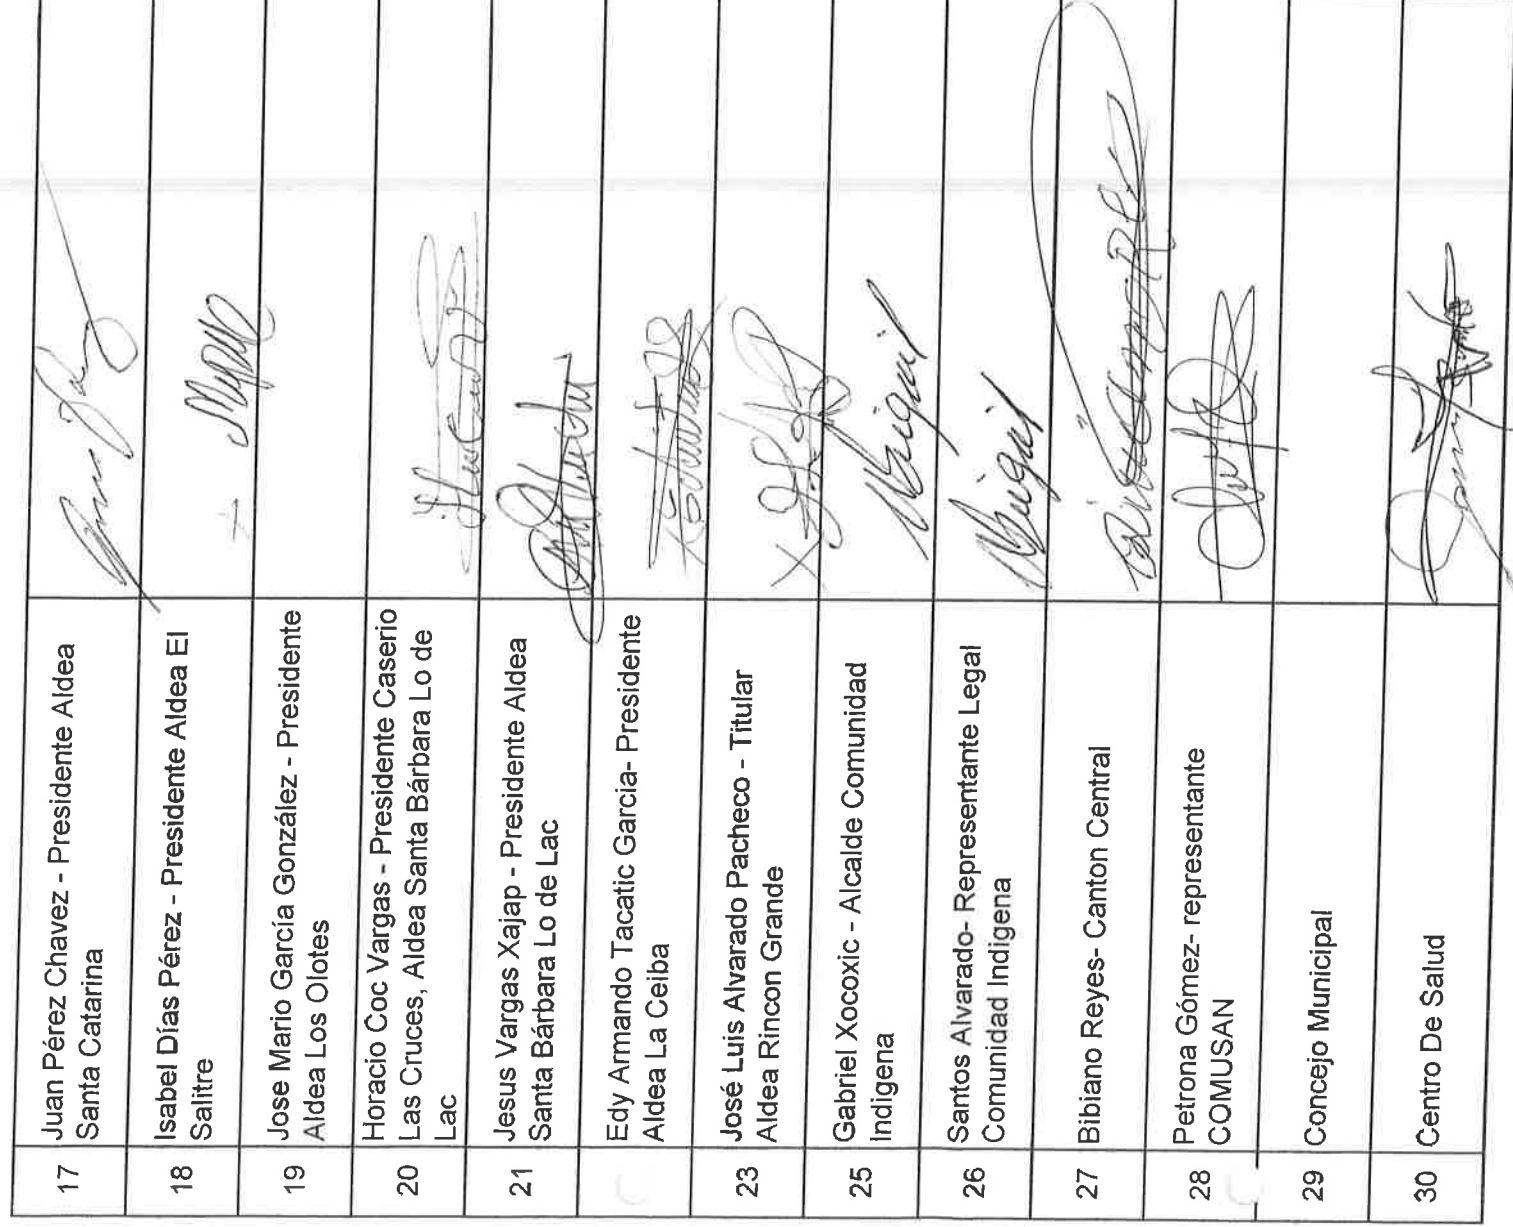 17 Juan Pérez Chavez - Presidente Aldea
Santa Catarina
18 Isabel Días Pérez - Presidente Aldea El
Salitre
19 Jose Mario García González - Presidente
Aldea Los Olotes
20 Horacio Coc Vargas - Presidente Caserio
Las Cruces, Aldea Santa Bárbara Lo de
Lac
21 Jesus Vargas Xajap - Presidente Aldea
Santa Bárbara Lo de Lac
Edy Armando Tacatic Garcia- Presidente
Aldea La Ceiba
23 José Luis Alvarado Pacheco - Titular
Aldea Rincon Grande
25 Gabriel Xocoxic - Alcalde Comunidad
Indigena
26 Santos Alvarado- Representante Legal
Comunidad Indigena
27 Bibiano Reyes- Canton Central
28 Petrona Gómez- representante
COMUSAN
29 Concejo Municipal
30 Centro De Salud